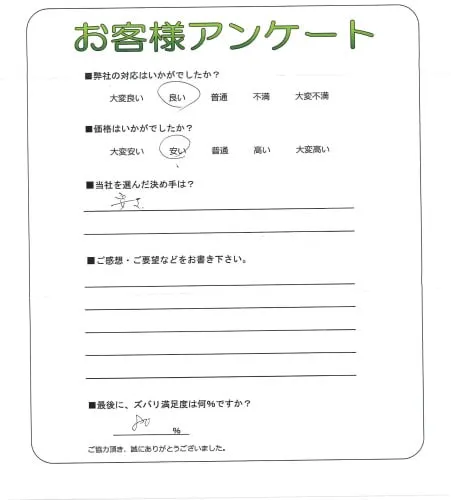 お客様アンケート
■弊社の対応はいかがでしたか?
大変良い 良い 普通 不満 大変不満
■価格はいかがでしたか?
大変安い 安い 普通 高い 大変高い
■当社を選んだ決め手は?
安さ
■ご感想・ご要望などをお書き下さい。
■最後に、ズバリ満足度は何%ですか?
80 %
ご協力頂き、誠にありがとうございました。